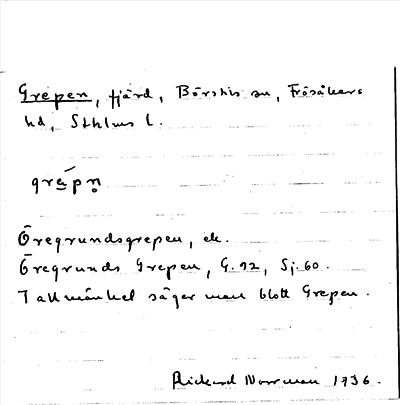 Grepen, fjärd, Börstils sn, Frösåkers
hd, Sthlms l.
grɛ́pn̥
Öregrundsgrepen, ek.
Öregrunds Grepen, G.12, Sj.60.
I allmänhet säger man blott Grepen.
Rickard Norrman 1936.